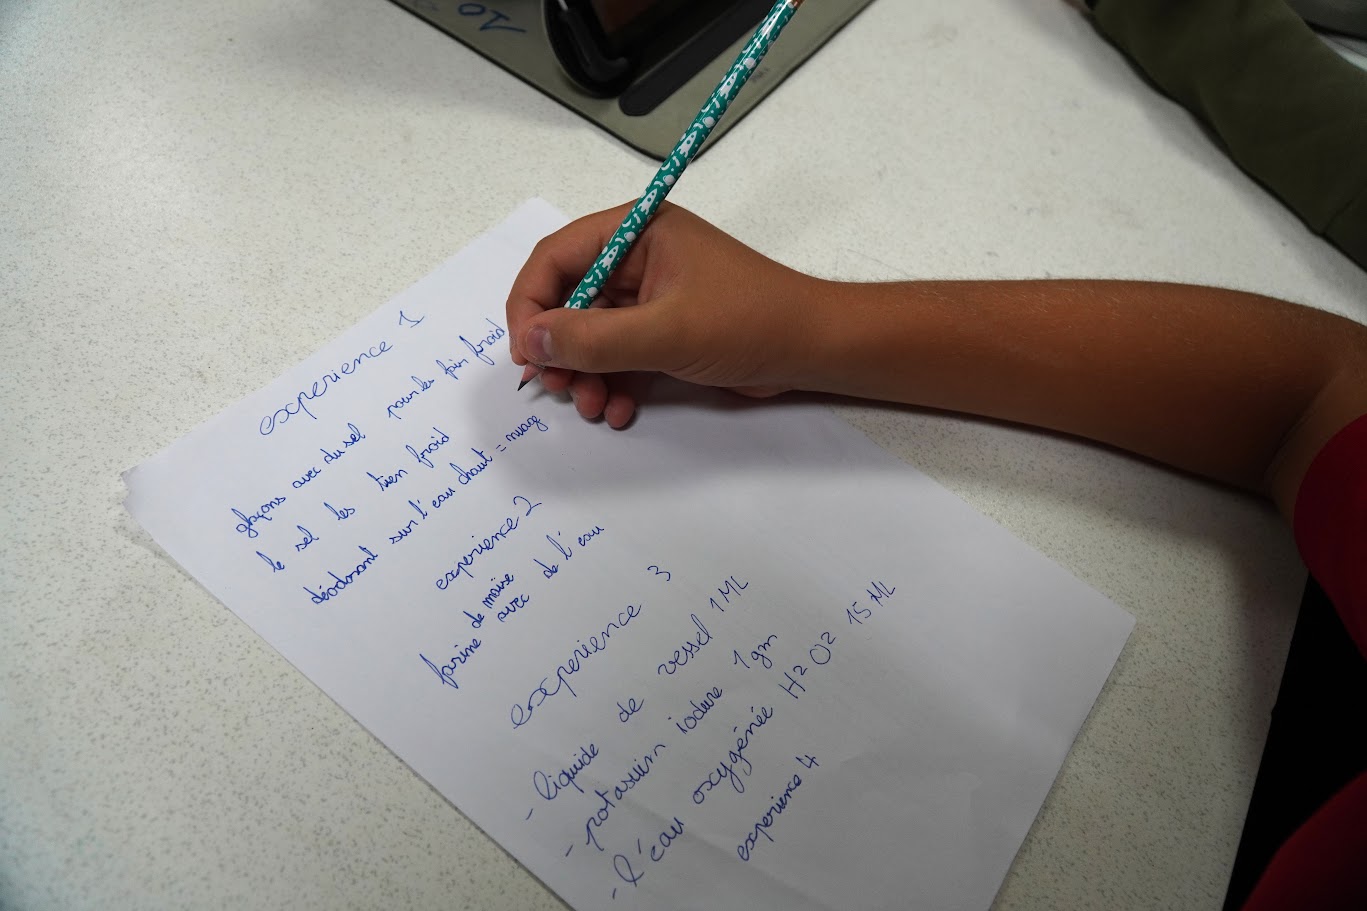 experience 1
glaçons avec du sel pour les fair froid
le sel les tien froid
déodorant sur l'eau chaut = nuage
experience 2
farine de maïse
avec de l'eau
experience 3
- liquide de vessel 1 ML
- potasuim iodure 1 gm
- l'eau oxygénée H2O2 15 ML
experience 4
10